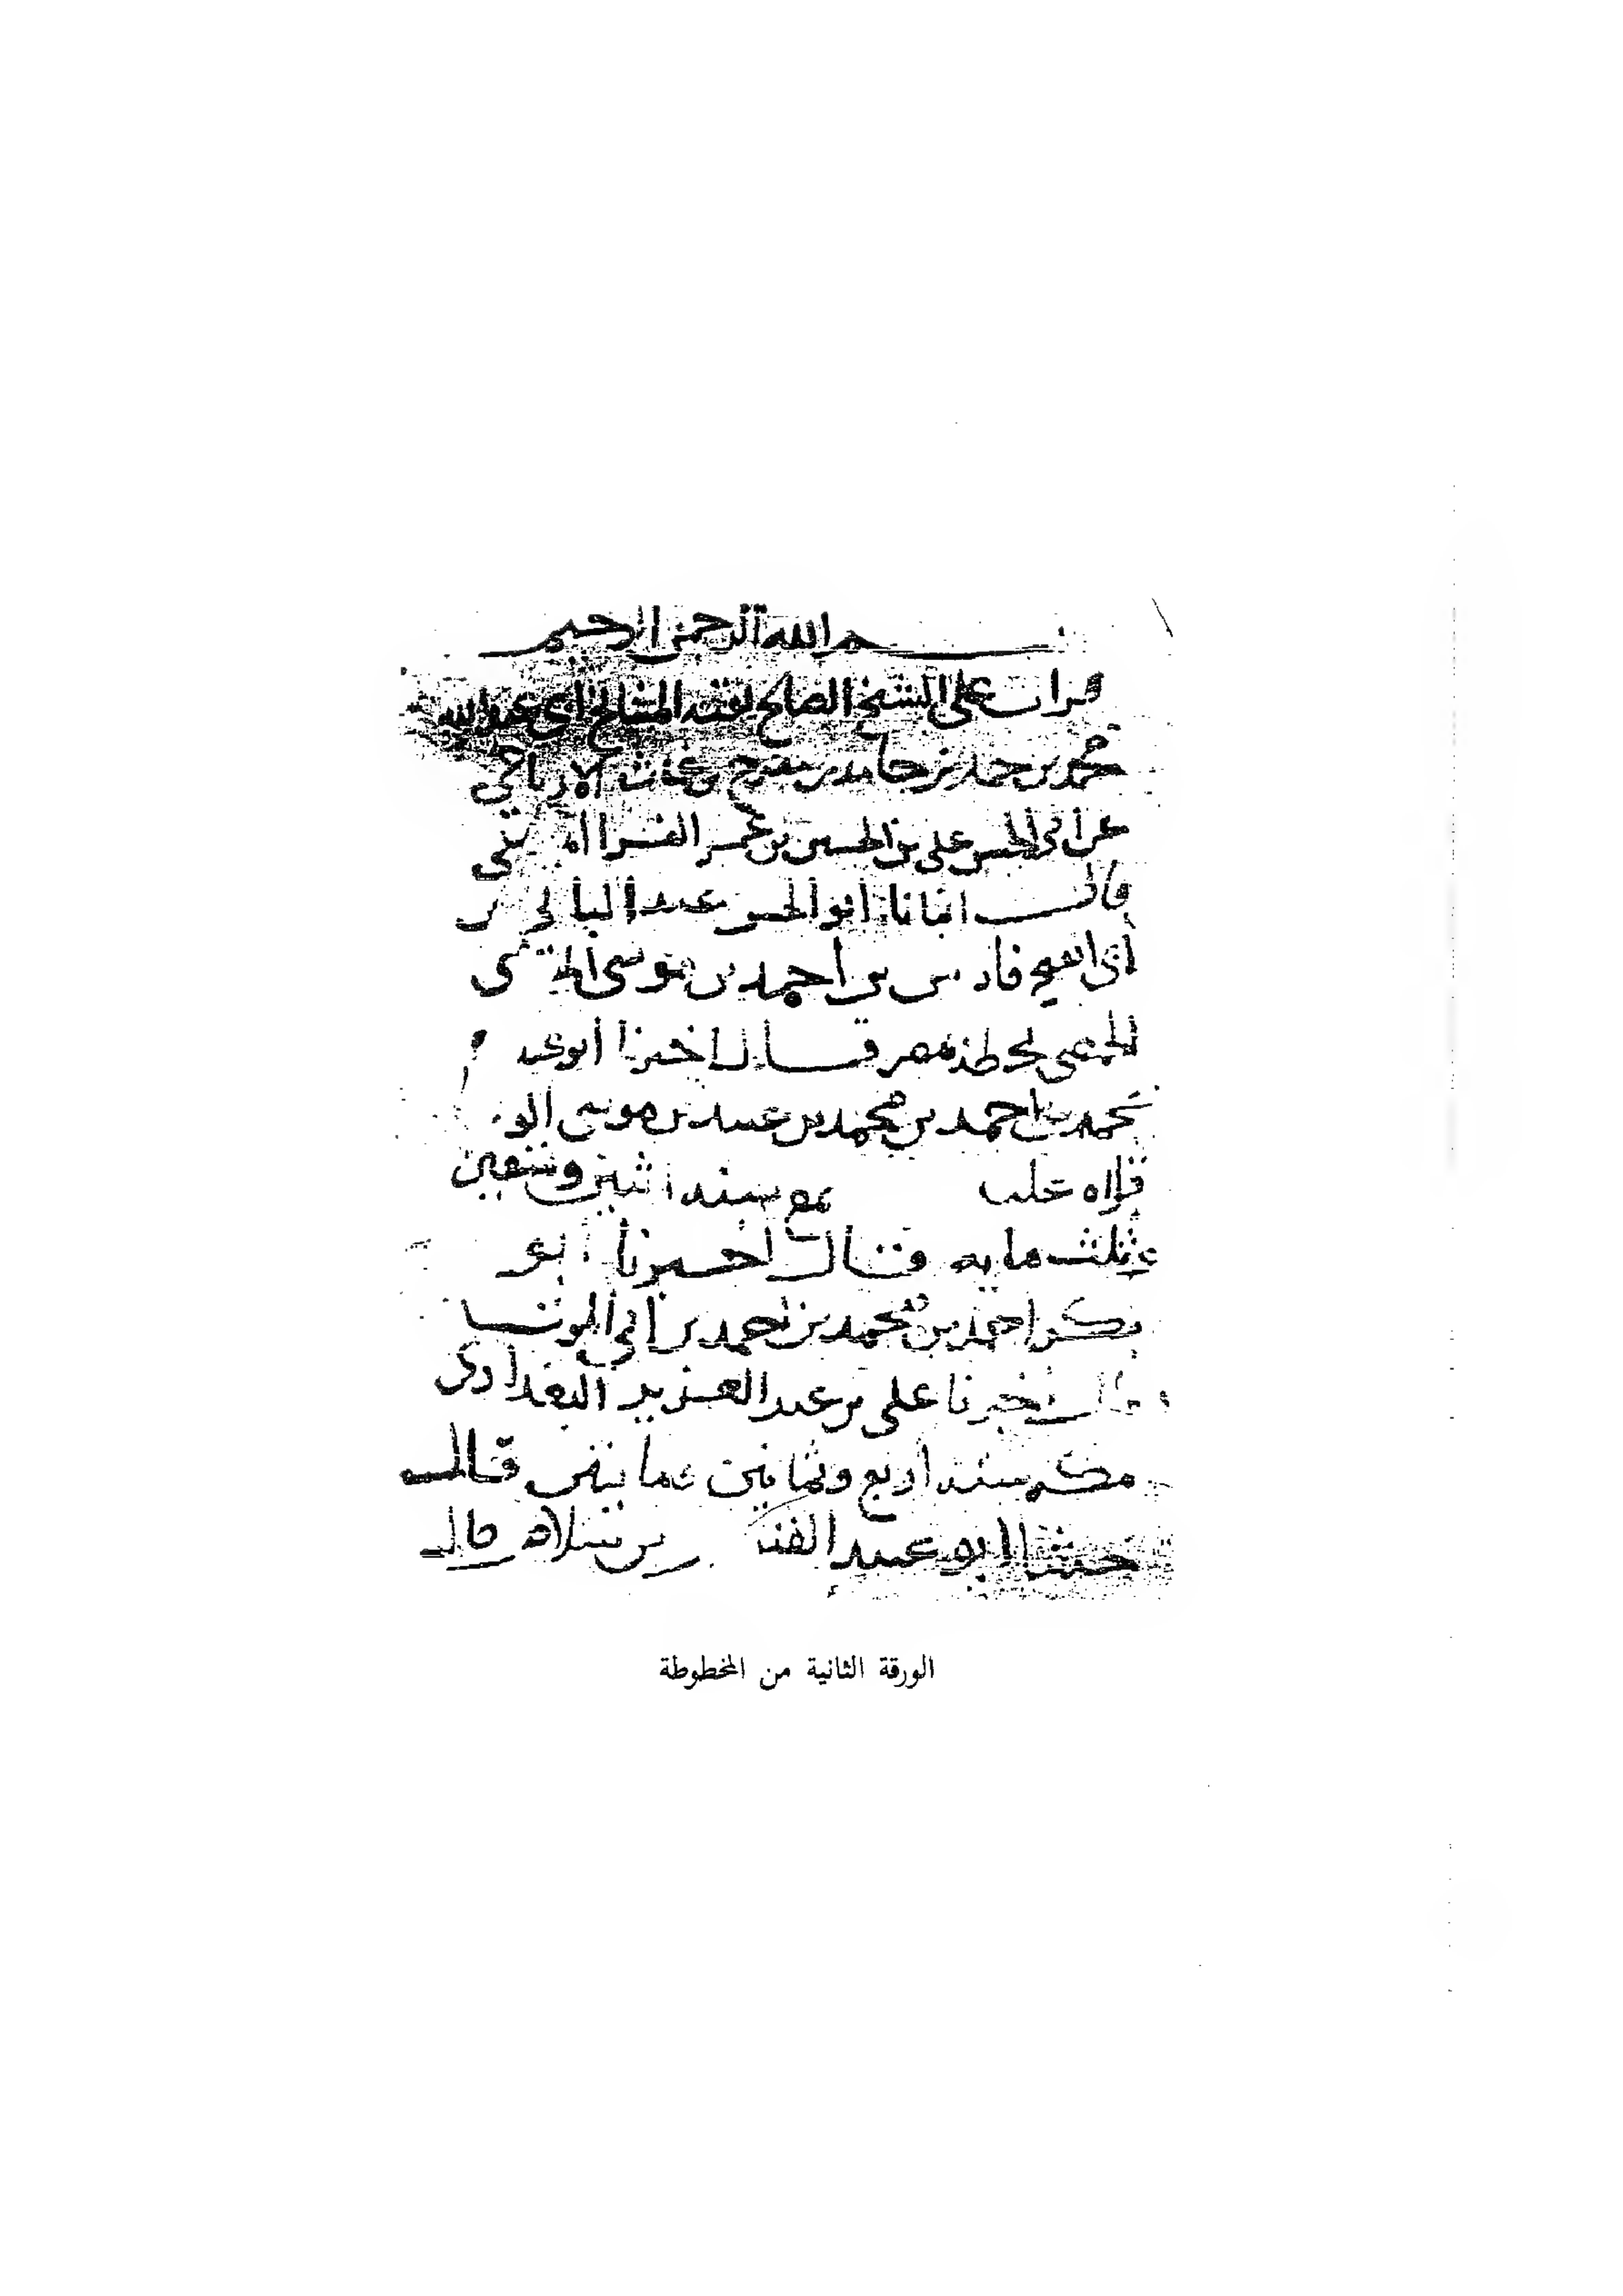 بسم الله الرحمن الرحيم
قرات على الشيخ الصالح بقية المشايخ ابي عبد الله
محمد بن حمد بن حامد بن مفرج بن غياث الارتاحي
عن ابي الحسن علي بن الحسين بن عمر الفرا
قال انبانا ابو الحسن عبد الباقي بن
ابي الفتح فارس بن احمد بن موسى
الحمصي بمصر قال اخبرنا ابو عبد
محمد بن احمد بن محمد بن عبيد بن موسى
قراه عليه سنة اثنين وتسعين
وثلث مايه قال اخبرنا ابو
بكر احمد بن محمد بن احمد بن ابي الموت
قال اخبرنا علي بن عبد العزيز البغدادي
بمكه سنه اربع وثمانين ومايتين قال
حدثنا ابو عبيد بن سلام قال
الورقة الثانية من المخطوطة